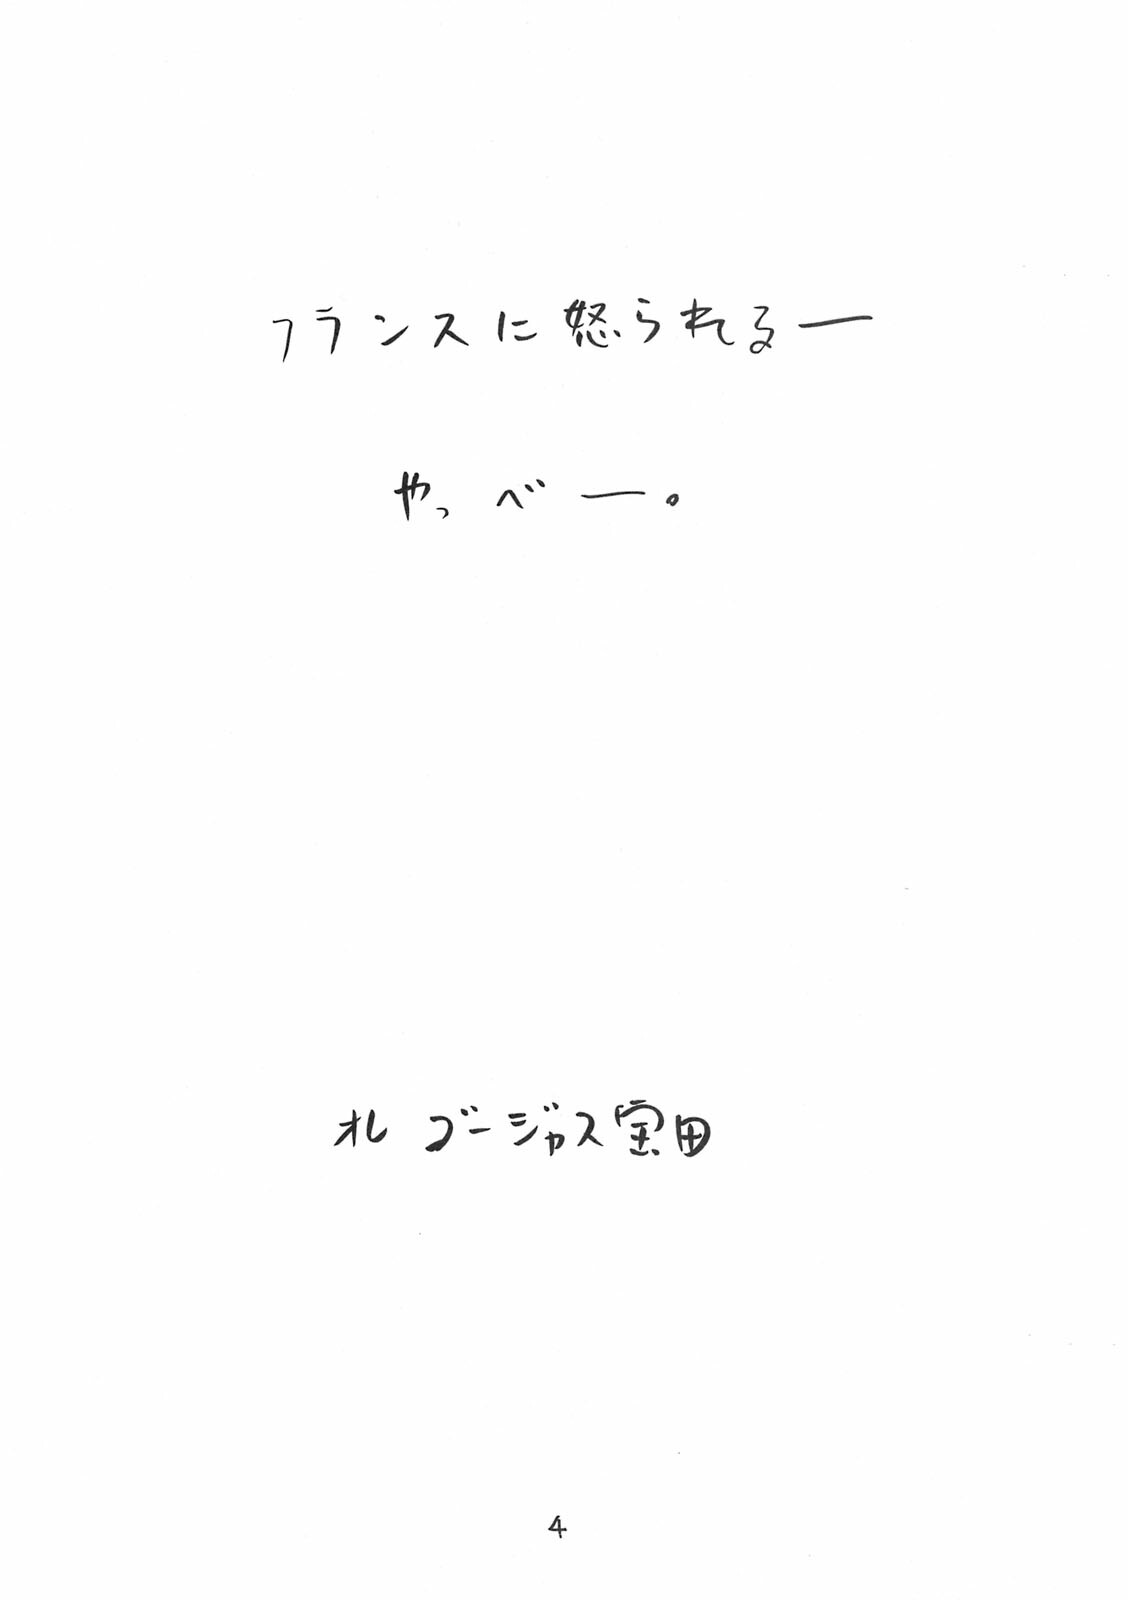 フランスに怒られるー
やっべー。
オレ ゴージャス宝田
4